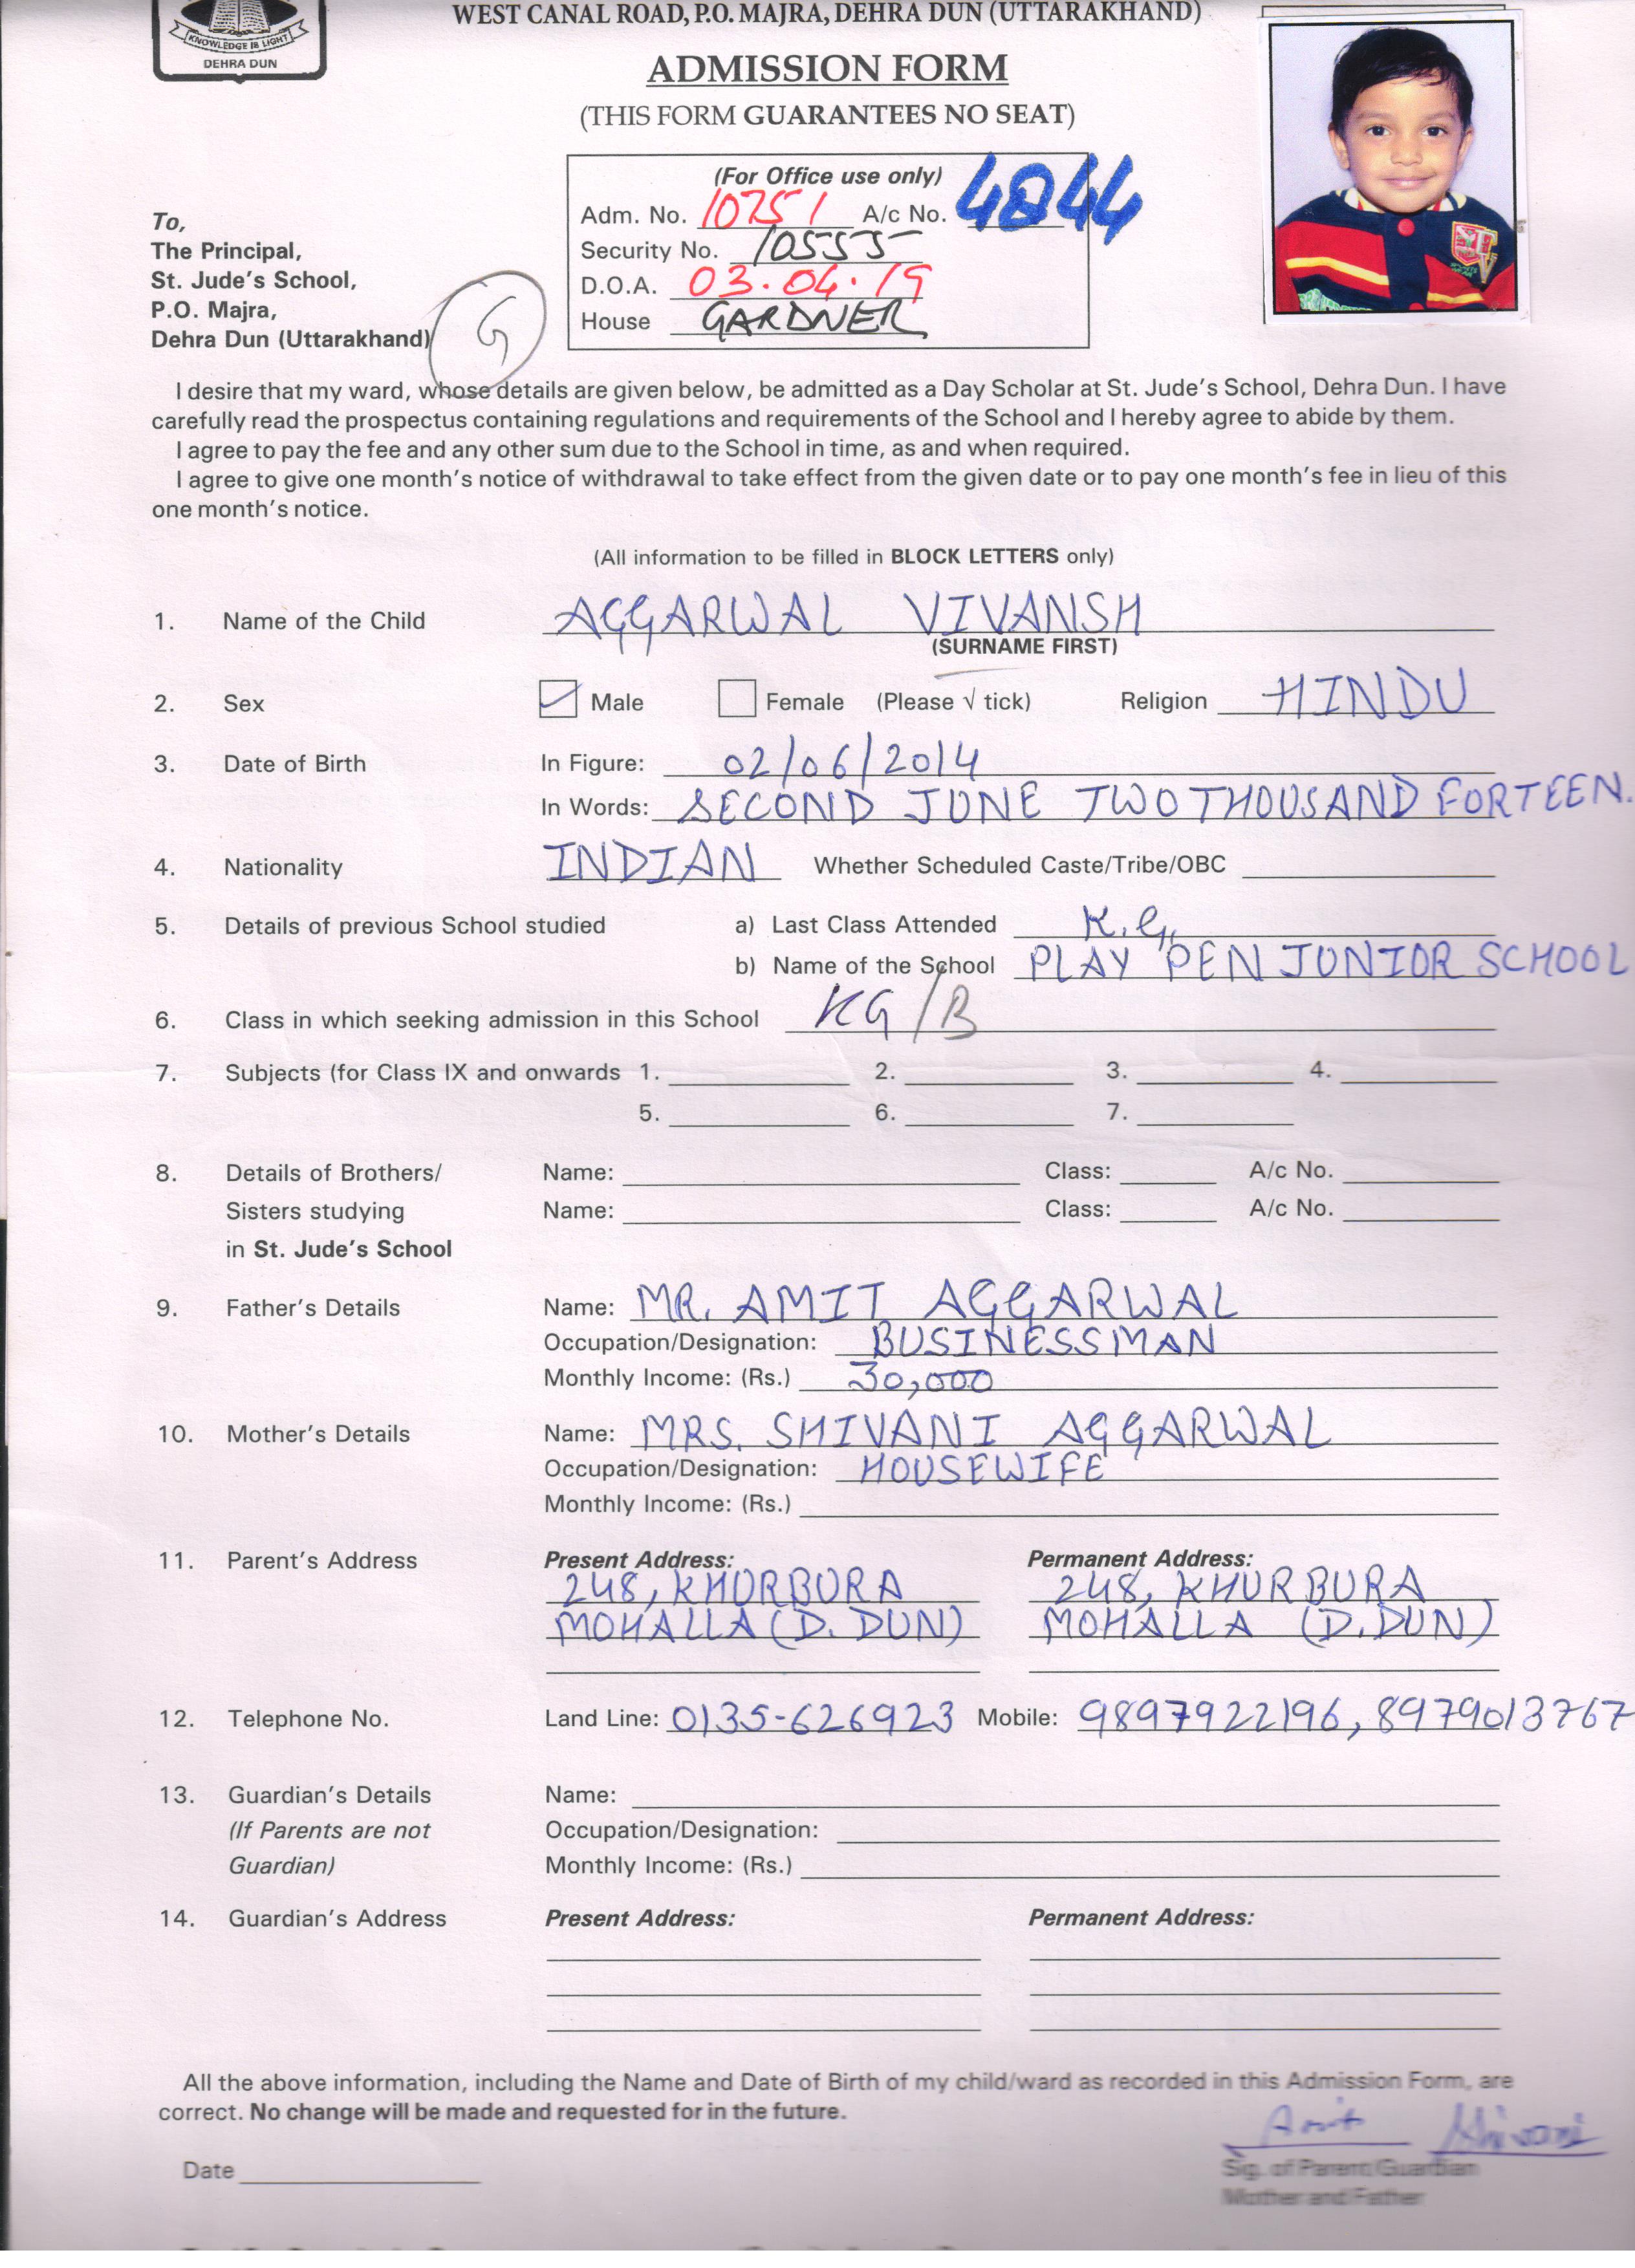 KNOWLEDGE IS LIGHT
DEHRA DUN
WEST CANAL ROAD, P.O. MAJRA, DEHRA DUN (UTTARAKHAND)
ADMISSION FORM
(THIS FORM GUARANTEES NO SEAT)
(For Office use only)
Adm. No. 10751 A/c No. 4844
Security No. 10555
D.O.A. 03.04.19
House GARDNER
To,
The Principal,
St. Jude's School,
P.O. Majra,
Dehra Dun (Uttarakhand)
G
I desire that my ward, whose details are given below, be admitted as a Day Scholar at St. Jude's School, Dehra Dun. I have
carefully read the prospectus containing regulations and requirements of the School and I hereby agree to abide by them.
I agree to pay the fee and any other sum due to the School in time, as and when required.
I agree to give one month's notice of withdrawal to take effect from the given date or to pay one month's fee in lieu of this
one month's notice.
(All information to be filled in BLOCK LETTERS only)
1. Name of the Child AGGARWAL VIVANSH
(SURNAME FIRST)
2. Sex Male Female (Please √ tick) Religion HINDU
3. Date of Birth In Figure: 02/06/2014
In Words: SECOND JUNE TWO THOUSAND FORTEEN.
4. Nationality INDIAN Whether Scheduled Caste/Tribe/OBC
5. Details of previous School studied a) Last Class Attended K.G.
b) Name of the School PLAY PEN JUNIOR SCHOOL
6. Class in which seeking admission in this School KG/B
7. Subjects (for Class IX and onwards 1. 2. 3. 4.
5. 6. 7.
8. Details of Brothers/ Name: Class: A/c No.
Sisters studying Name: Class: A/c No.
in St. Jude's School
9. Father's Details Name: MR. AMIT AGGARWAL
Occupation/Designation: BUSINESSMAN
Monthly Income: (Rs.) 30,000
10. Mother's Details Name: MRS. SHIVANI AGGARWAL
Occupation/Designation: HOUSEWIFE
Monthly Income: (Rs.)
11. Parent's Address Present Address: Permanent Address:
248, KHURBURA 248, KHURBURA
MOHALLA (D. DUN) MOHALLA (D. DUN)
12. Telephone No. Land Line: 0135-626923 Mobile: 9897922196, 8979013767
13. Guardian's Details Name:
(If Parents are not Occupation/Designation:
Guardian) Monthly Income: (Rs.)
14. Guardian's Address Present Address: Permanent Address:
All the above information, including the Name and Date of Birth of my child/ward as recorded in this Admission Form, are
correct. No change will be made and requested for in the future.
Amit Shivani
Date Sig. of Parent/Guardian
Mother and Father